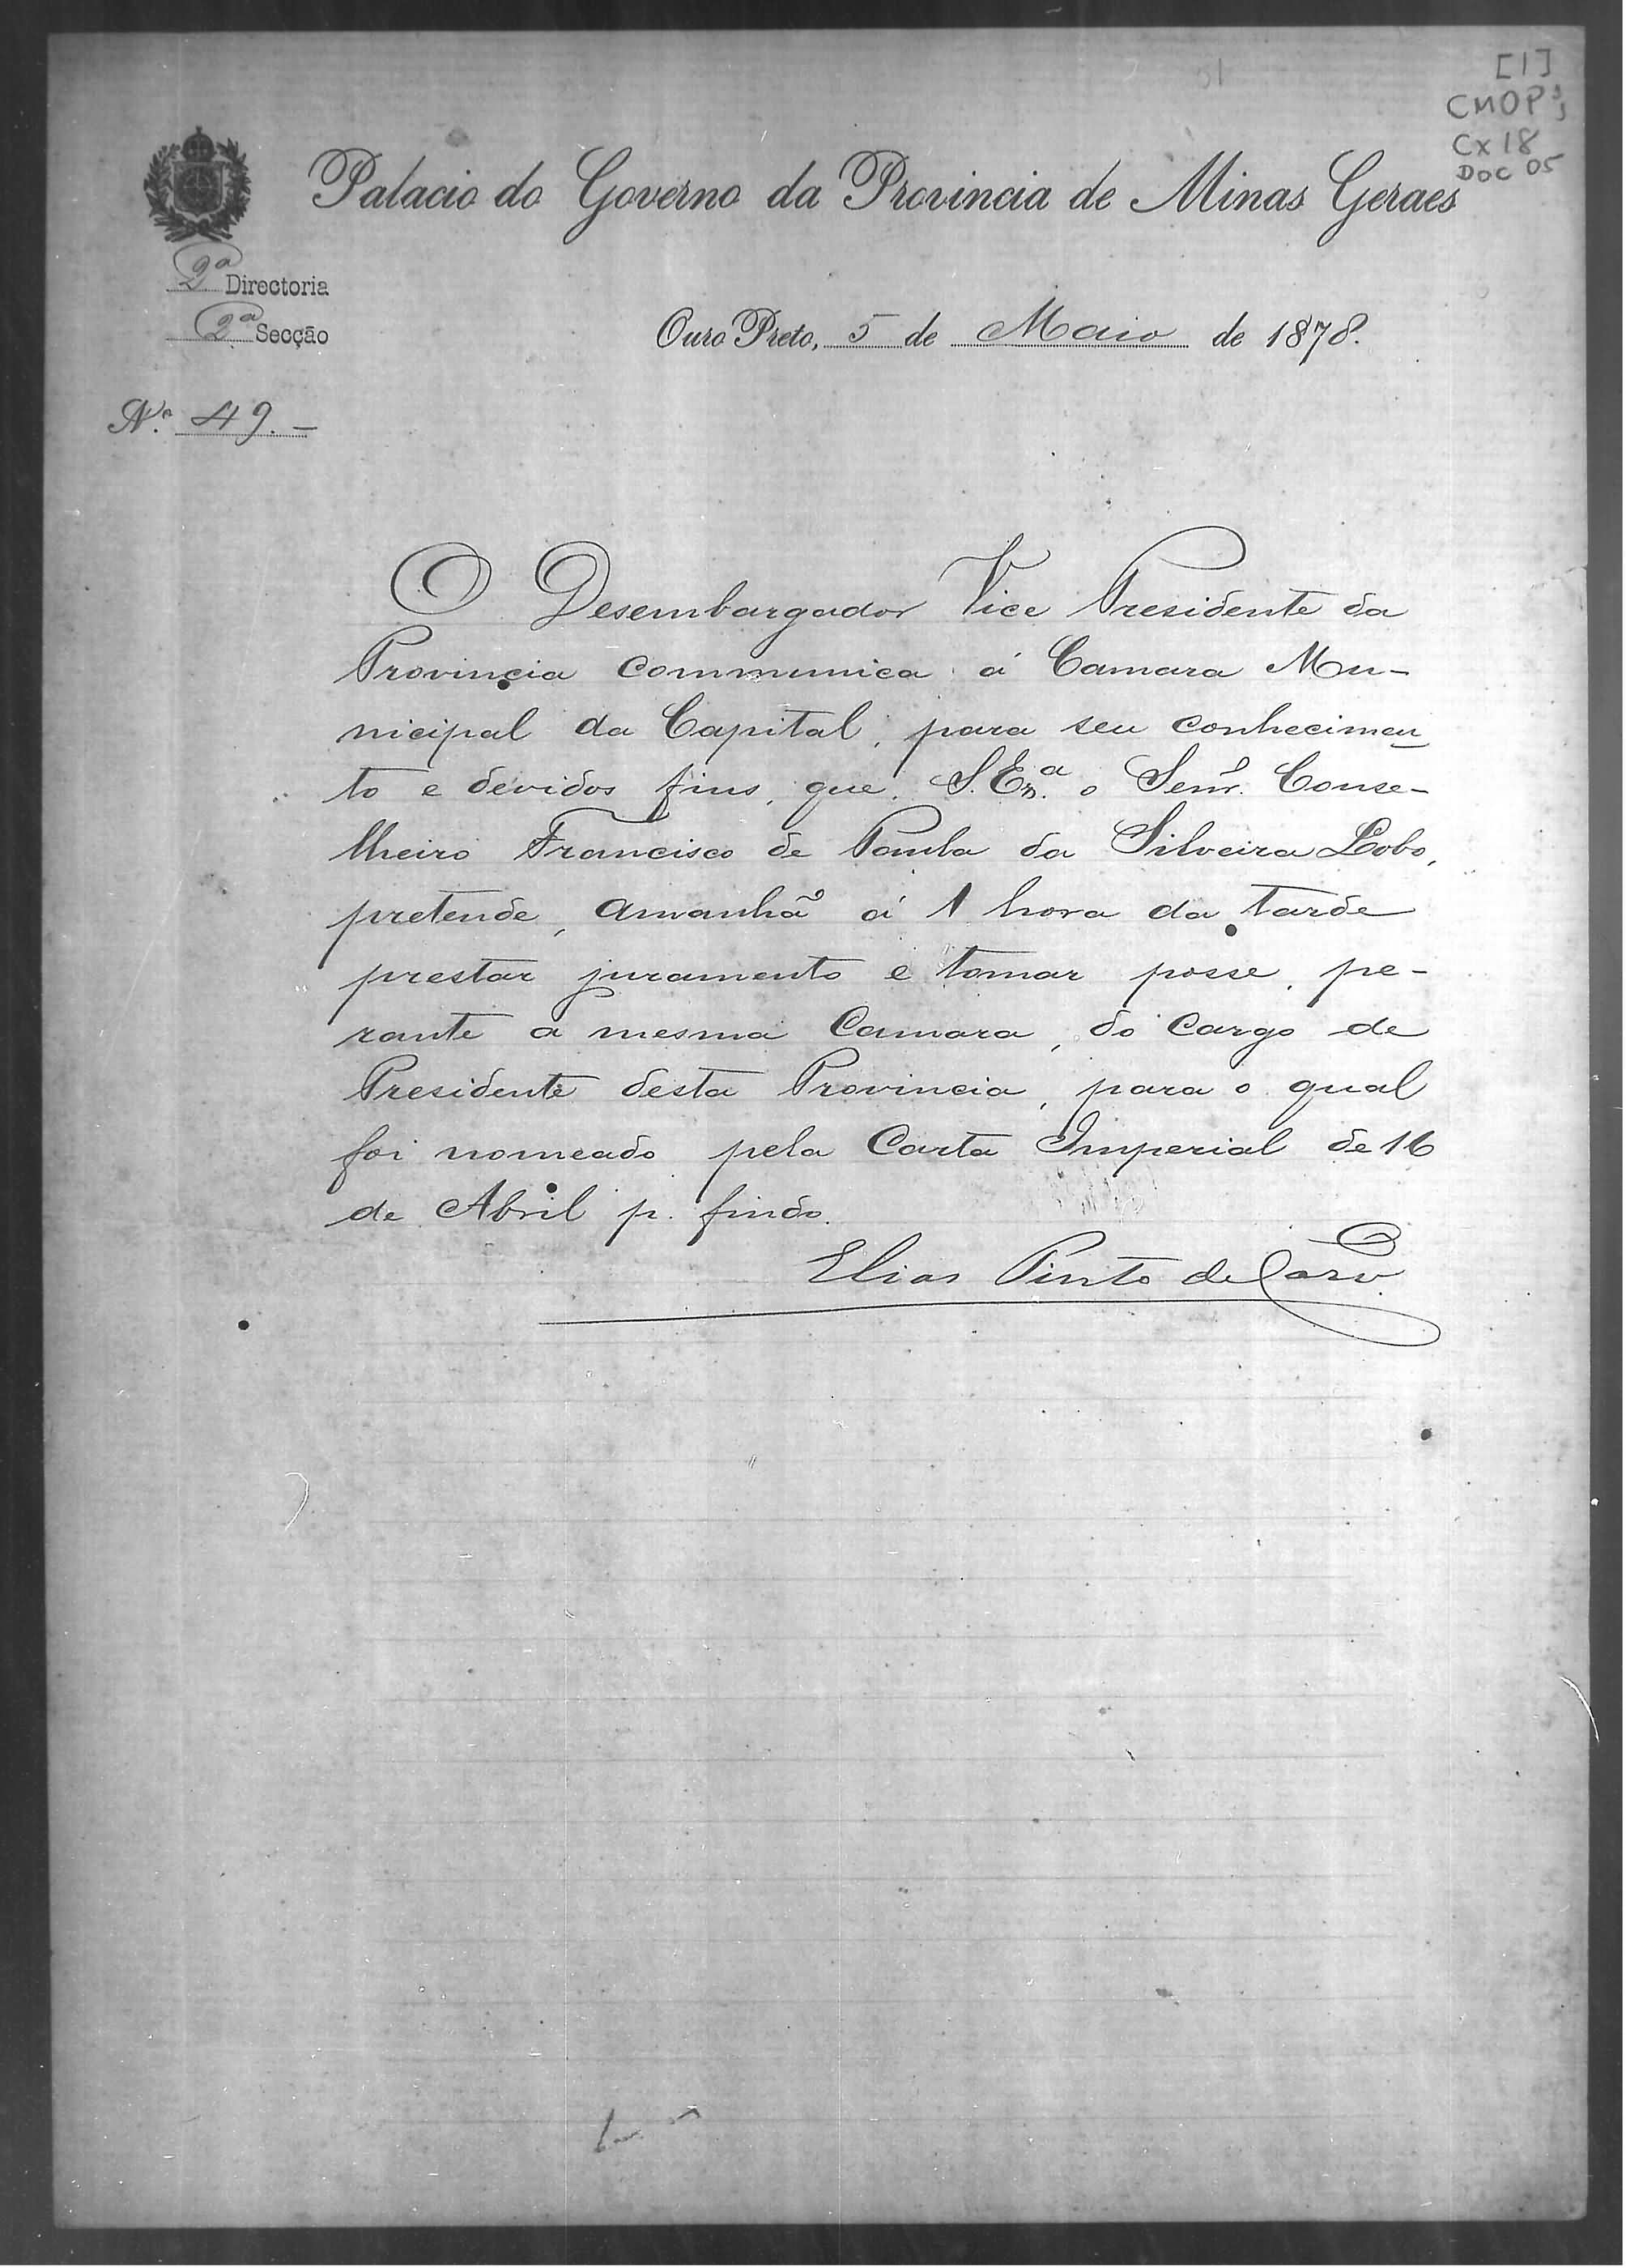 [1]
CMOP
Cx 18
DOC 05
Palacio do Governo da Provincia de Minas Geraes
2ª Directoria
2ª Secção
Ouro Preto, 5 de Maio de 1878.
Nº 49.-
O Desembargador Vice Presidente da
Provincia communica á Camara Mu-
nicipal da Capital, para seu conhecimen
to e devidos fins, que S. Exª o Senr. Conse-
lheiro Francisco de Paula da Silveira Lobo,
pretende, amanhã á 1 hora da tarde
prestar juramento e tomar posse, pe-
rante a mesma Camara, do cargo de
Presidente desta Provincia, para o qual
foi nomeado pela Carta Imperial de 16
de Abril p. findo.
Elias Pinto de Carv.